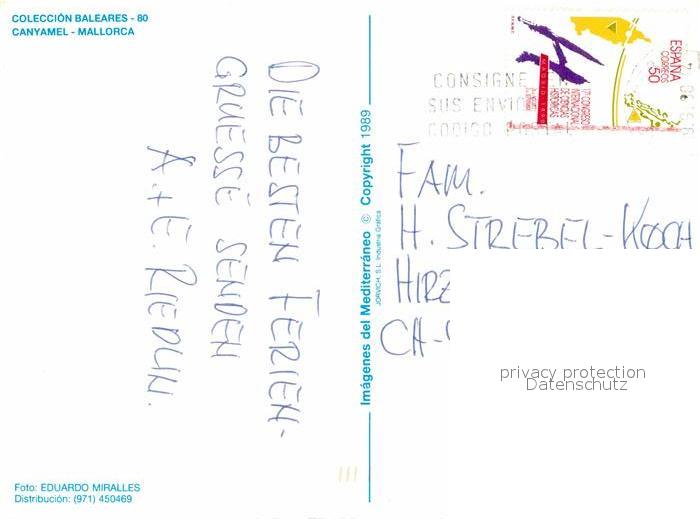 COLECCIÓN BALEARES - 80
CANYAMEL - MALLORCA
DIE BESTEN FERIEN-
GRUESSE SENDEN
A. + E.
Foto: EDUARDO MIRALLES
Distribución: (971) 450469
Imágenes del Mediterráneo © Copyright 1989
JORVICH, S.L. Industria Gráfica
ESPAÑA
CORREOS
50
17º CONGRESO
INTERNACIONAL
DE CIENCIAS
HISTORICAS
MADRID 1990
CONSIGNE
SUS ENVIO
CODIGO
FAM.
H. STREBEL-KOCH
HIRZ
CH-
privacy protection
Datenschutz